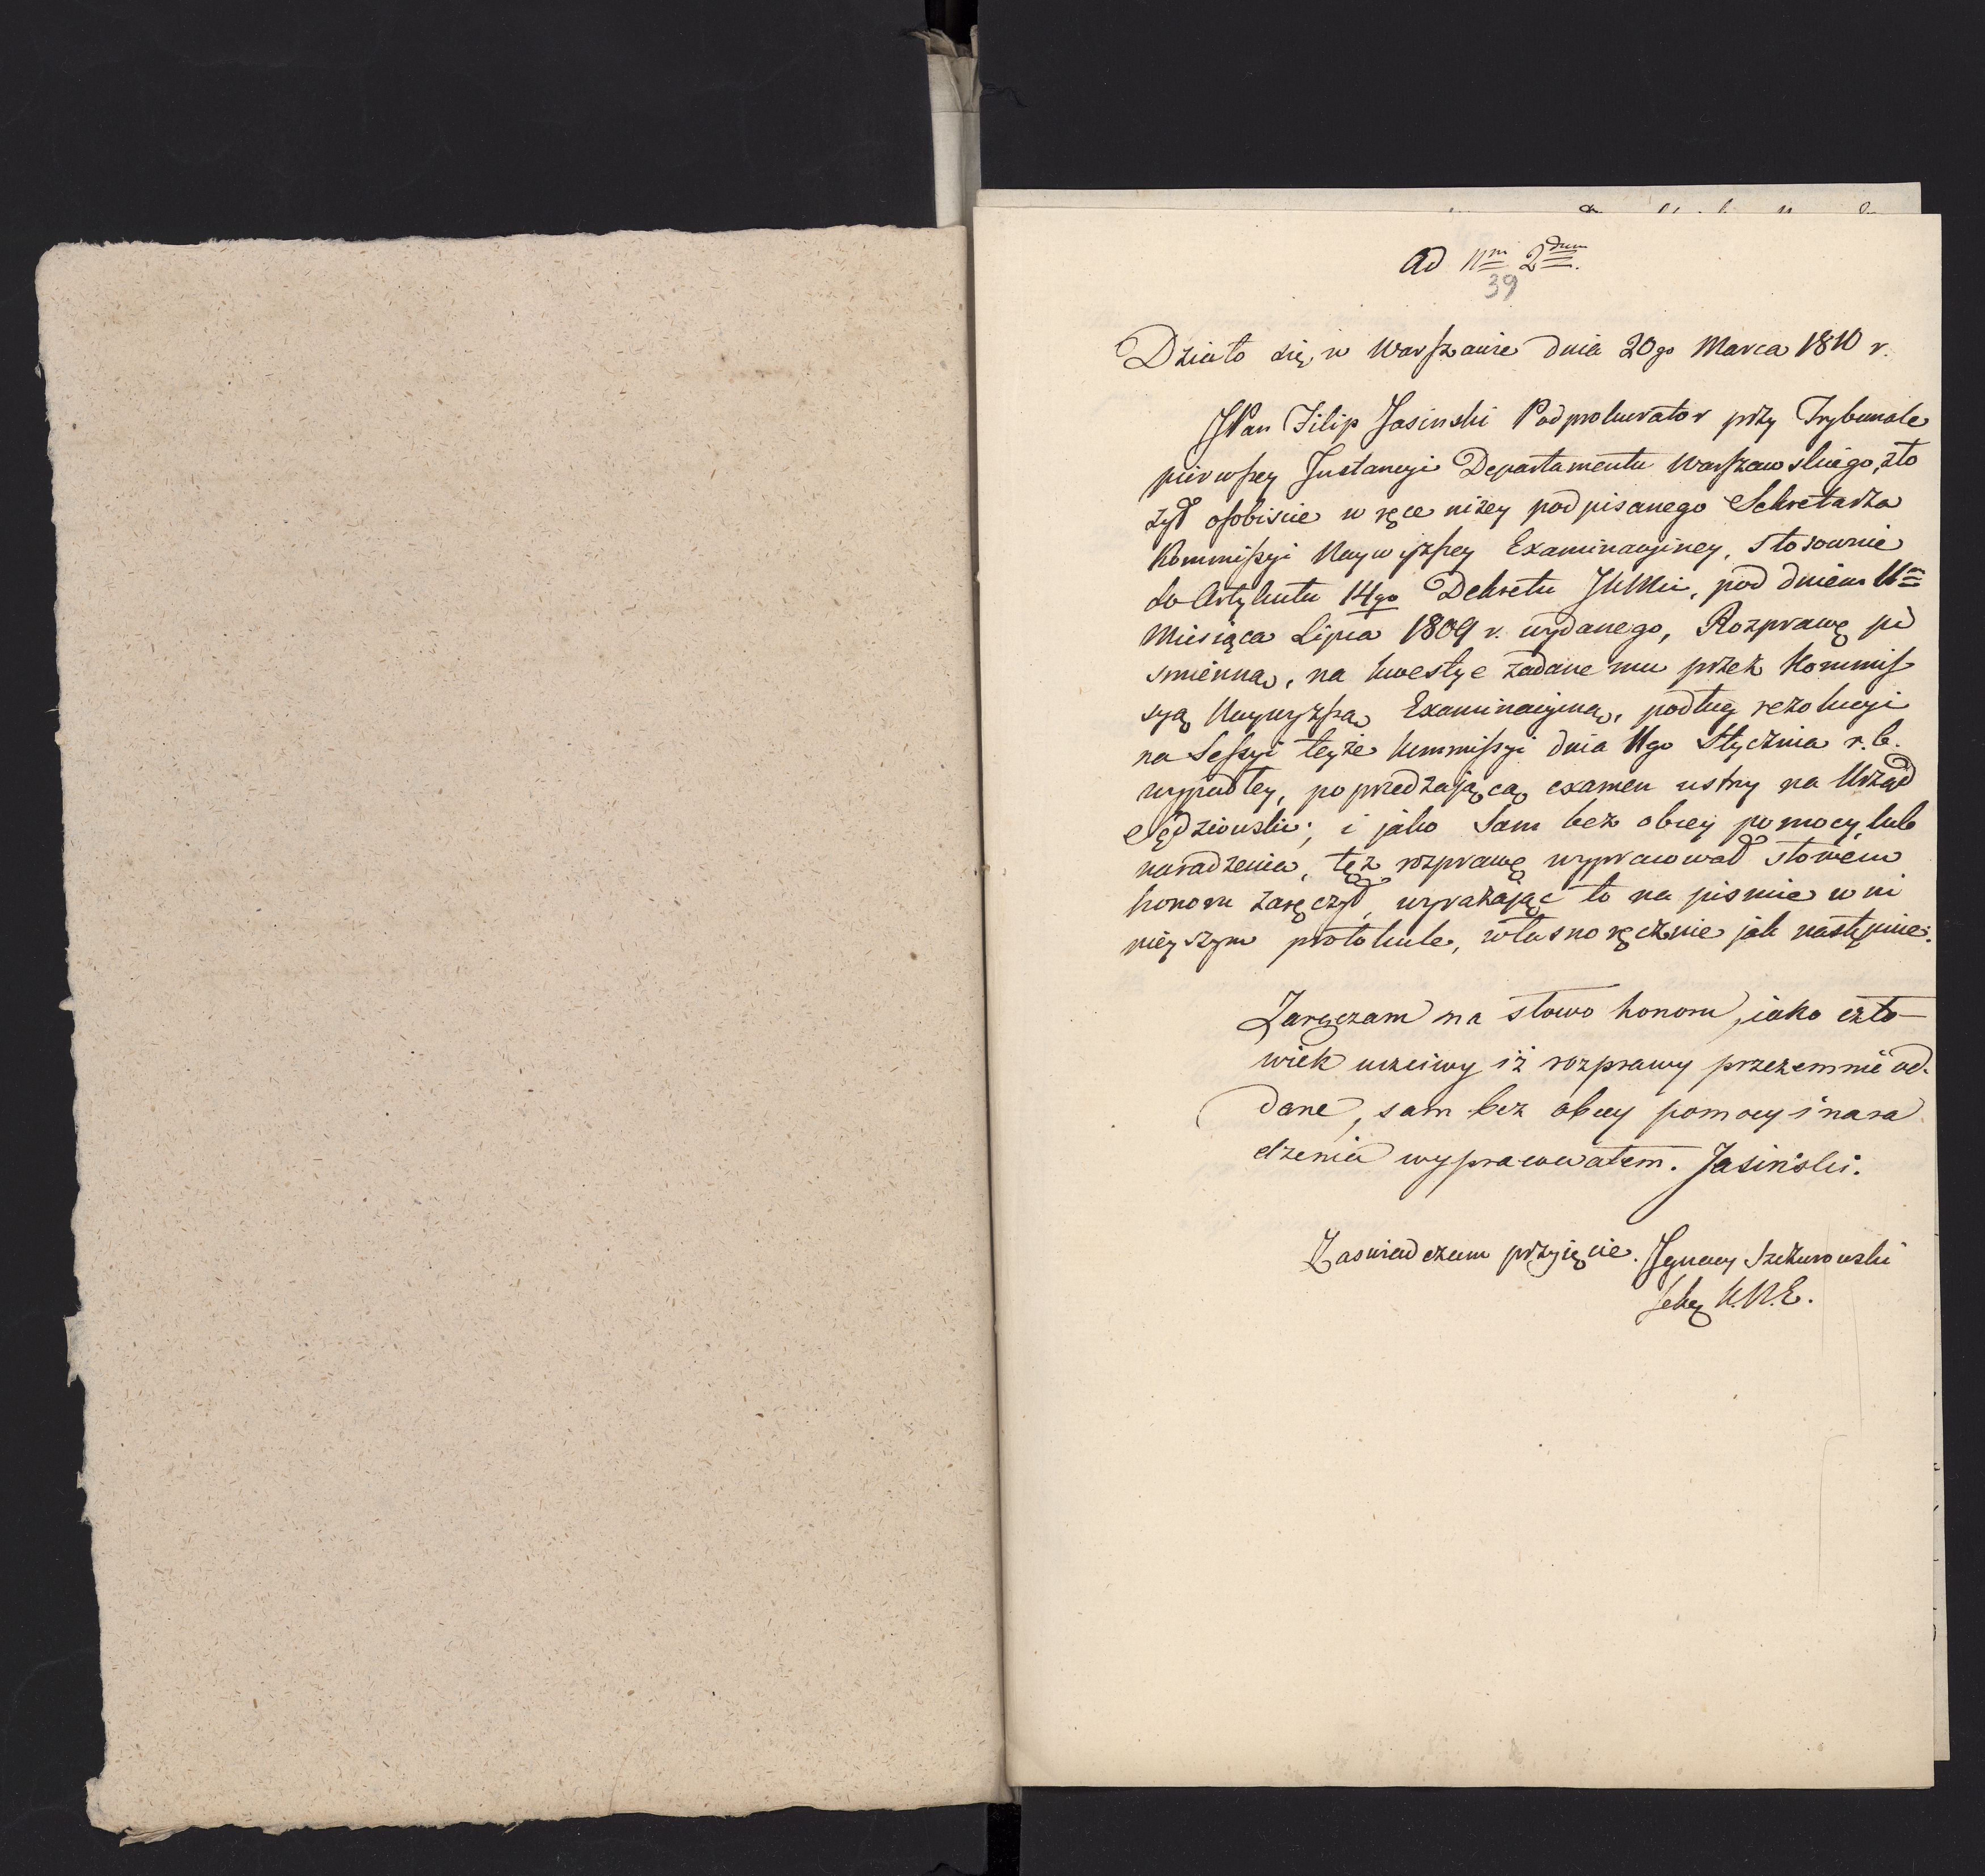 Ad N<sup>m</sup> 2<sup>dum</sup>.
39
Działo się w Warszawie dnia 20go Marca 1810 r.
JPan Filip Jasinski Podprokurator przy Trybunale
pierwszey Instancyi Departamentu Warszawskiego, zło
żył osobiscie w ręce niżey podpisanego Sekretarza
Kommissyi Naywyższey Examinacyiney, stosownie
do Artykułu 14go Dekretu JKMci, pod dniem
Miesiąca Lipca 1809 r. wydanego, Rozprawę pi
smienną, na kwestye zadane mu przez Kommis
syą Naywyższą Examinacyiną, podług rezolucyi
na Sessyi teyże Kommissyi dnia 11go Stycznia r. b.
wypadłey, poprzedzaiącą examen ustny na Urząd
Sędziowski; i jako Sam bez obcey pomocy, lub
naradzenia, tęż rozprawę wypracował słowem
honoru zaręczył, wyrażając to na pismie w ni
nieyszym protokule, własnoręcznie jak następuie:
Zaręczam na słowo honoru, iako czło-
wiek uczciwy iż rozprawy przezemnie od-
dane, sam bez obcey pomocy i nara
dzenia wypracowałem. Jasiński.
Zaswiadczam przyięcie. Ignacy Szczurowski
Sekr K.N.E.